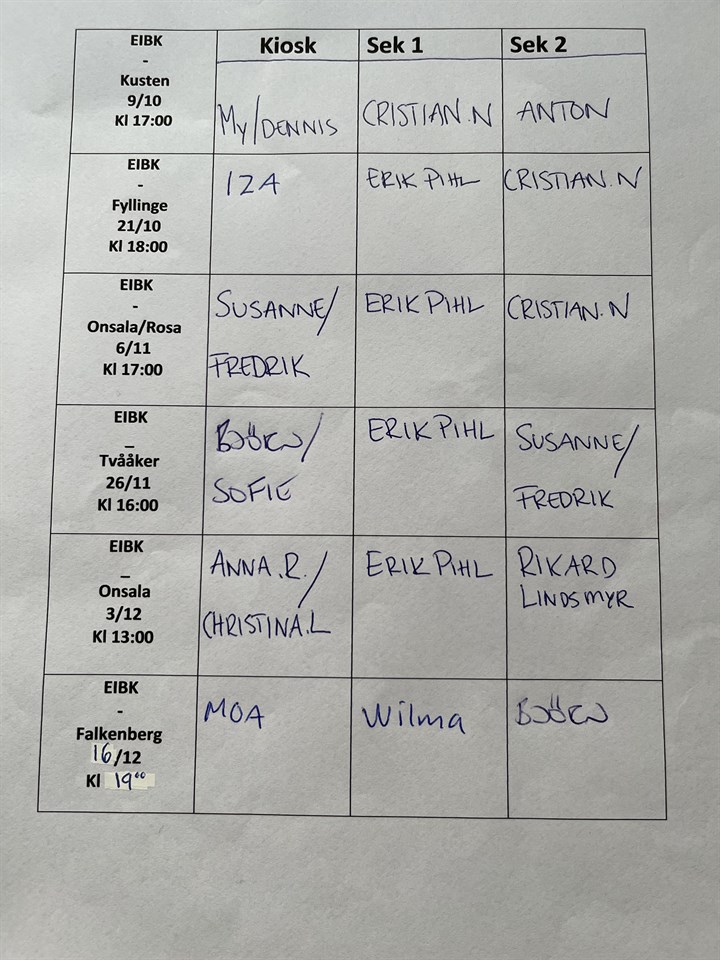 EIBK
-
Kusten
9/10
Kl 17:00
Kiosk
Sek 1
Sek 2
My/DENNIS
CRISTIAN.N
ANTON
EIBK
-
Fyllinge
21/10
Kl 18:00
IZA
ERIK PIHL
CRISTIAN.N
EIBK
-
Onsala/Rosa
6/11
Kl 17:00
SUSANNE/
FREDRIK
ERIK PIHL
CRISTIAN.N
EIBK
_
Tvååker
26/11
Kl 16:00
BJÖRN/
SOFIE
ERIK PIHL
SUSANNE/
FREDRIK
EIBK
_
Onsala
3/12
Kl 13:00
ANNA.R./
CHRISTINA.L
ERIK PIHL
RIKARD
LINDSMYR
EIBK
-
Falkenberg
16/12
Kl 19⁰⁰
MOA
Wilma
BJÖRN